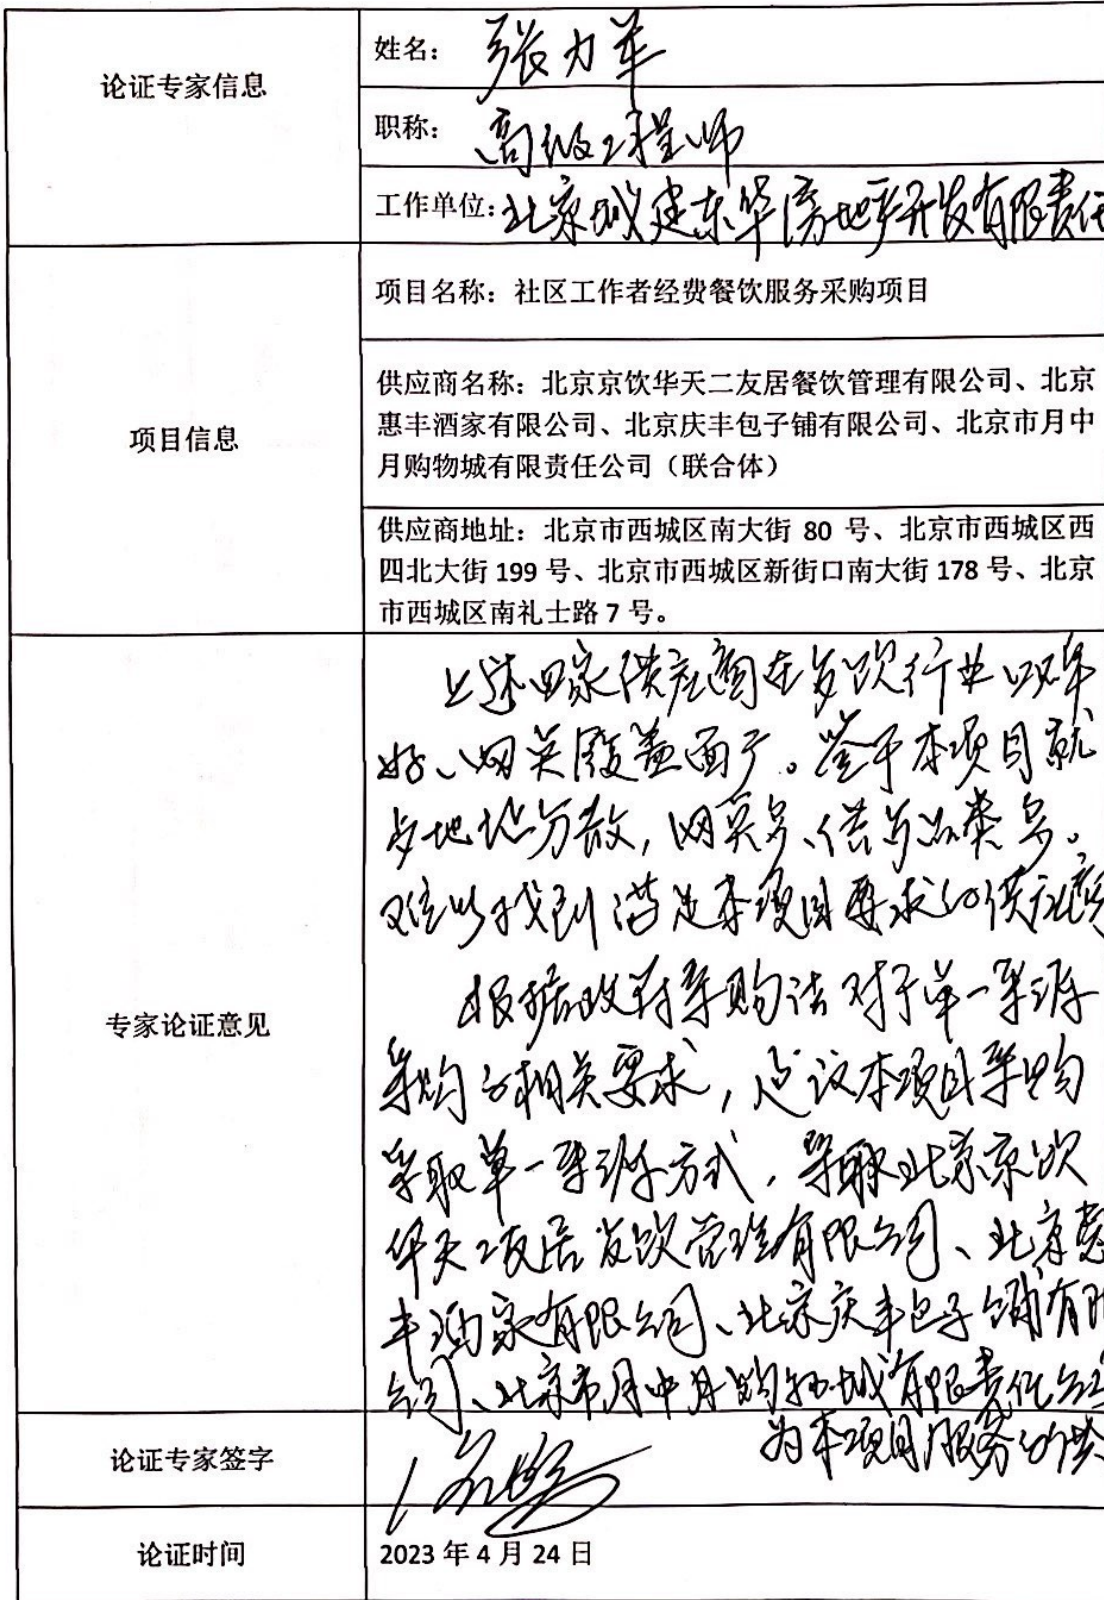 论证专家信息
姓名：张力军
职称：高级工程师
工作单位：北京城建东华房地产开发有限责任
项目信息
项目名称：社区工作者经费餐饮服务采购项目
供应商名称：北京京饮华天二友居餐饮管理有限公司、北京
惠丰酒家有限公司、北京庆丰包子铺有限公司、北京市月中
月购物城有限责任公司（联合体）
供应商地址：北京市西城区南大街 80 号、北京市西城区西
四北大街 199 号、北京市西城区新街口南大街 178 号、北京
市西城区南礼士路 7 号。
专家论证意见
上述四家供应商在餐饮行业口碑
好、网点覆盖面广。鉴于本项目就
餐地址分散，网点多、供餐品类多。
难以找到满足本项目要求的供应商
根据政府采购法对于单一来源
采购的相关要求，建议本项目采购
采取单一来源方式，采取北京京饮
华天二友居餐饮管理有限公司、北京惠
丰酒家有限公司、北京庆丰包子铺有限
公司、北京市月中月购物城有限责任公司
为本项目服务的供
论证专家签字
论证时间
2023 年 4 月 24 日